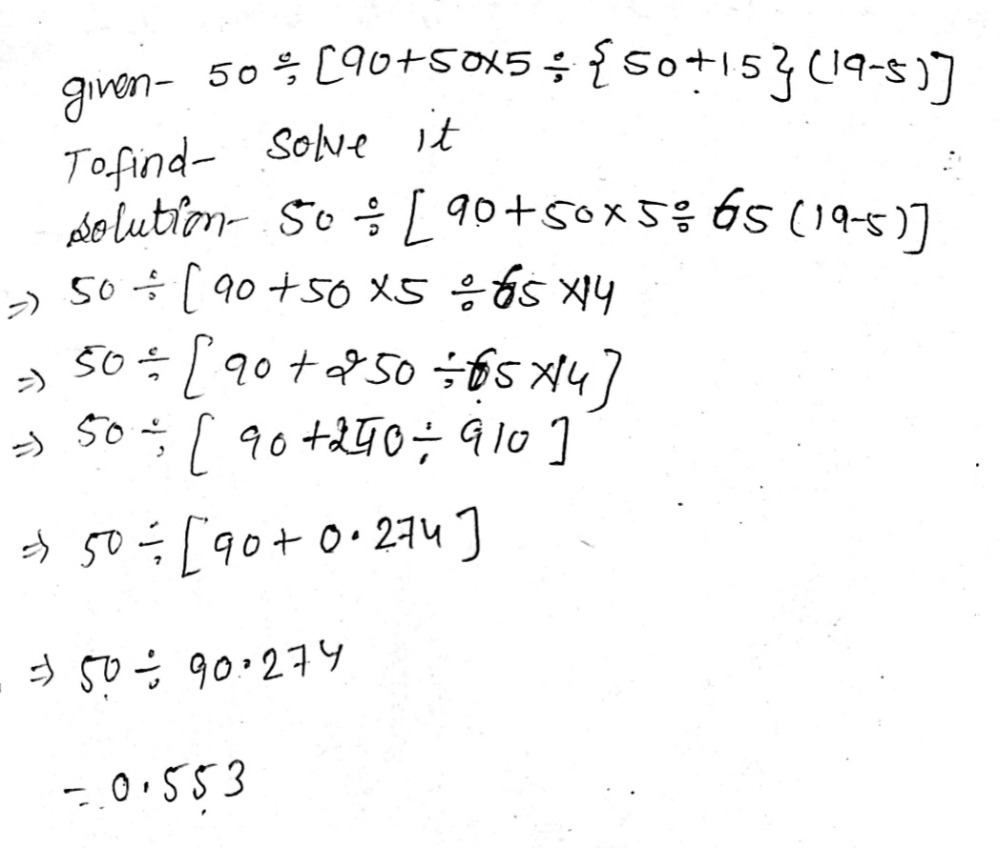 given- 50 ÷ [90+50x5 ÷ {50+15} (19-5)]
To find- Solve it
solution- 50 ÷ [ 90+50x5 ÷ 65 (19-5)]
⇒ 50 ÷ [ 90 +50 x5 ÷ 65 x14
⇒ 50 ÷ [ 90 + 250 ÷ 65 x14]
⇒ 50 ÷ [ 90 +250 ÷ 910 ]
⇒ 50 ÷ [90 + 0.274]
⇒ 50 ÷ 90.274
= 0.553